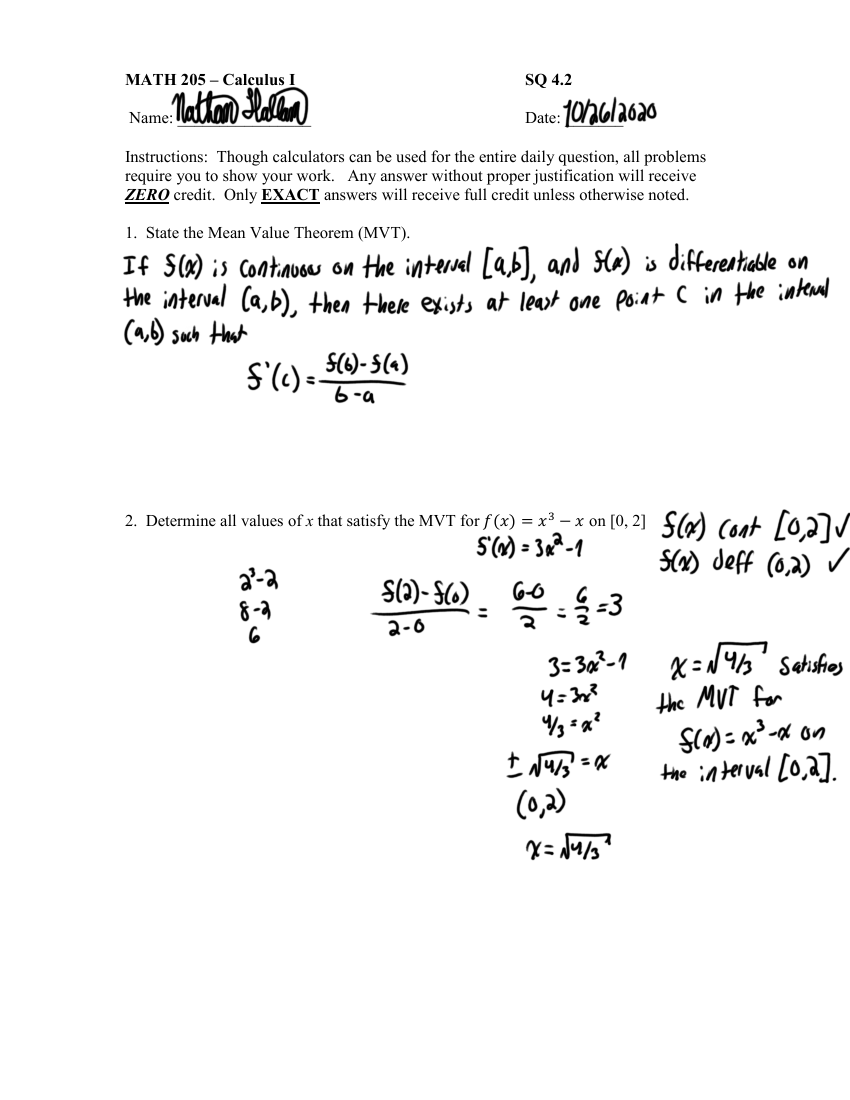 MATH 205 – Calculus I SQ 4.2
Name: Nathan Date: 10/26/2020
Instructions: Though calculators can be used for the entire daily question, all problems
require you to show your work. Any answer without proper justification will receive
ZERO credit. Only EXACT answers will receive full credit unless otherwise noted.
1. State the Mean Value Theorem (MVT).
If f(x) is continuous on the interval [a,b], and f(x) is differentiable on
the interval (a,b), then there exists at least one point C in the interval
(a,b) such that
f'(c) = f(b)-f(a) / b-a
2. Determine all values of x that satisfy the MVT for f(x) = x³ − x on [0, 2]
f(x) cont [0,2] ✓
f'(x) = 3x²-1
f(x) deff (0,2) ✓
2³-2
8-2
6
f(2)-f(0) / 2-0 = 6-0 / 2 = 6/2 = 3
3=3x²-1
4=3x²
4/3=x²
± √4/3 = x
(0,2)
x=√4/3
x=√4/3 satisfies
the MVT for
f(x)=x³-x on
the interval [0,2].